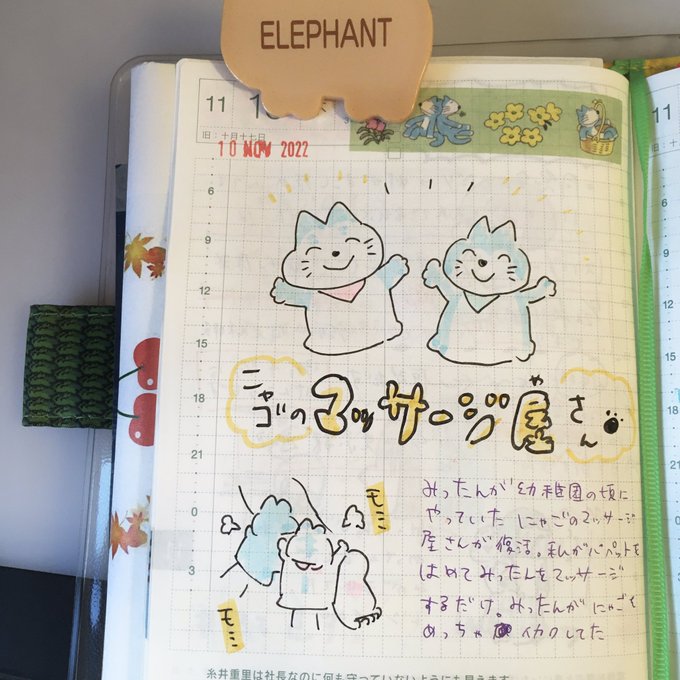 ELEPHANT
11
旧:十月十七日
10 NOV 2022
6
9
12
15
18
21
0
3
ニャゴのマッサージ屋さん
や
モミ
モミ
みったんが幼稚園の頃に
やっていた にゃごのマッサージ
屋さんが復活。私がパペットを
はめてみったんをマッサージ
するだけ。みったんがにゃごを
めっちゃ イカクしてた
糸井重里は社長なのに何も守っていないようにも見えます
11